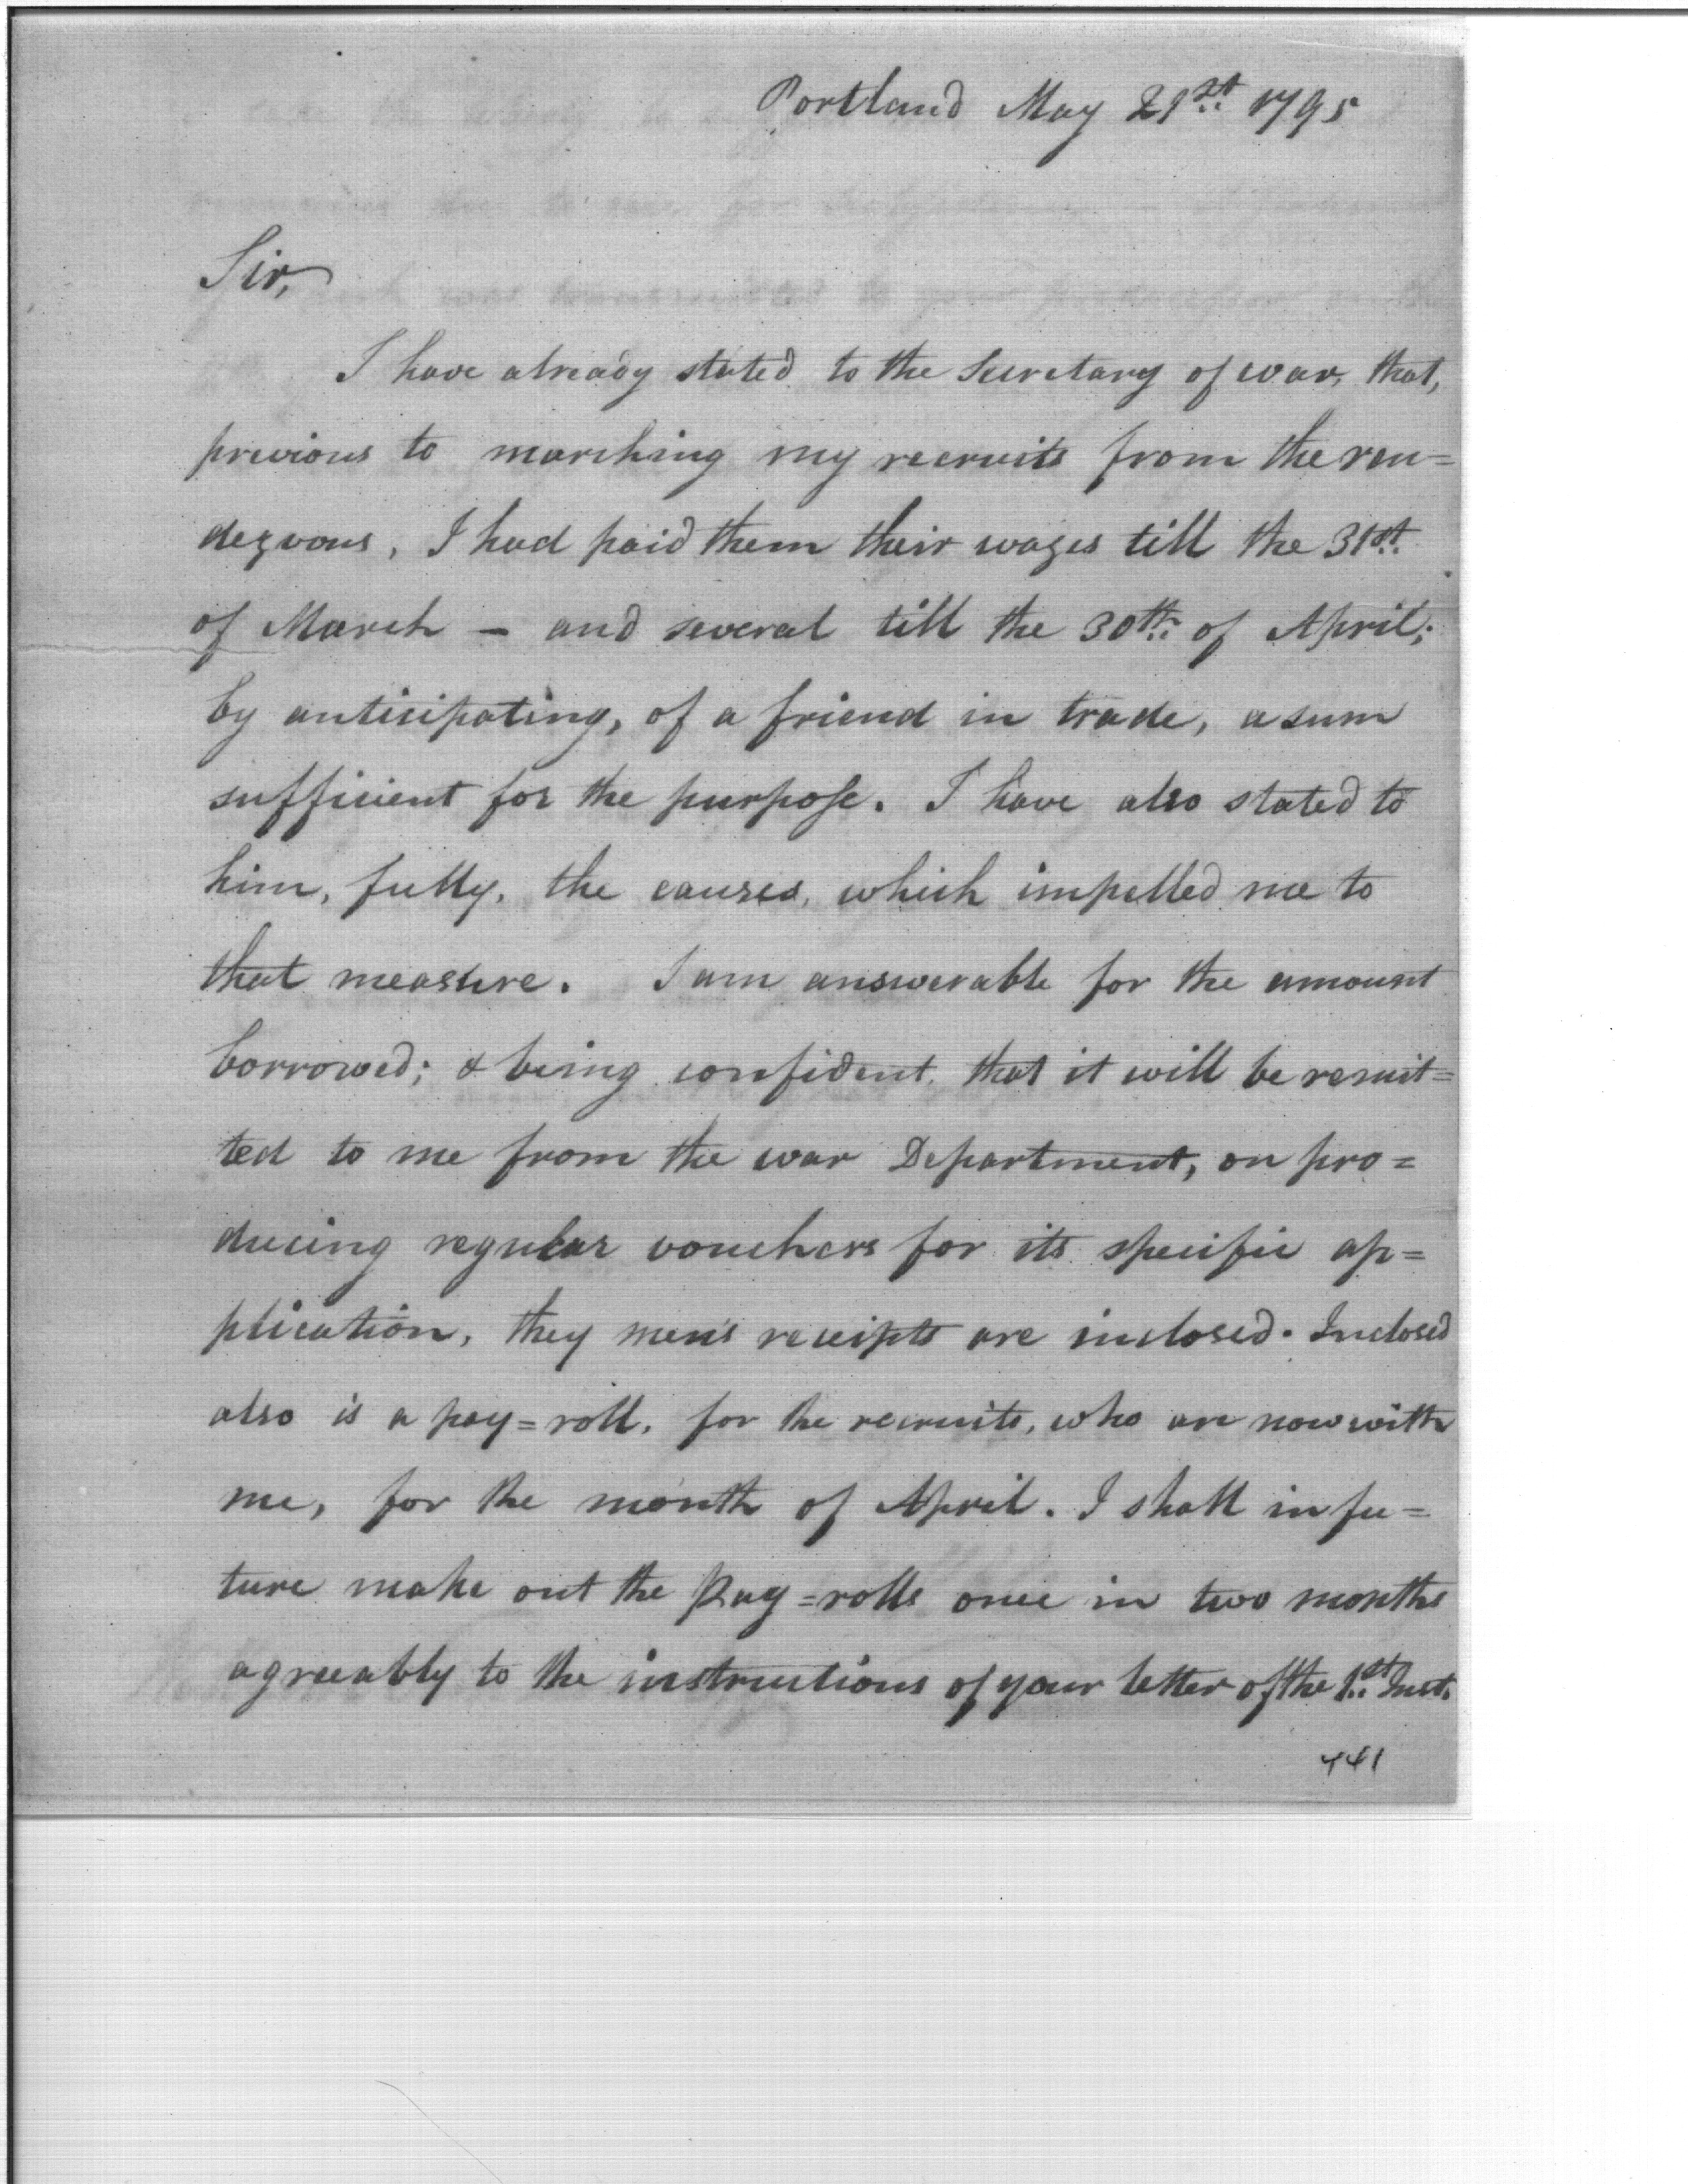 Portland May 21st 1795
Sir,
I have already stated to the Secretary of war, that,
previous to marching my recruits from the ren=
dezvous, I had paid them their wages till the 31st
of March – and several till the 30th of April;
by anticipating, of a friend in trade, a sum
sufficient for the purpose. I have also stated to
him, fully, the causes, which impelled me to
that measure. I am answerable for the amount
borrowed; & being confident, that it will be remit=
ted to me from the war Department, on pro=
ducing regular vouchers for its specific ap=
plication, they men's receipts are inclosed. Inclosed
also is a pay=roll, for the recruits, who are now with
me, for the month of April. I shall in fu=
ture make out the Pay=rolls once in two months
agreeably to the instructions of your letter of the 1st Inst.
441